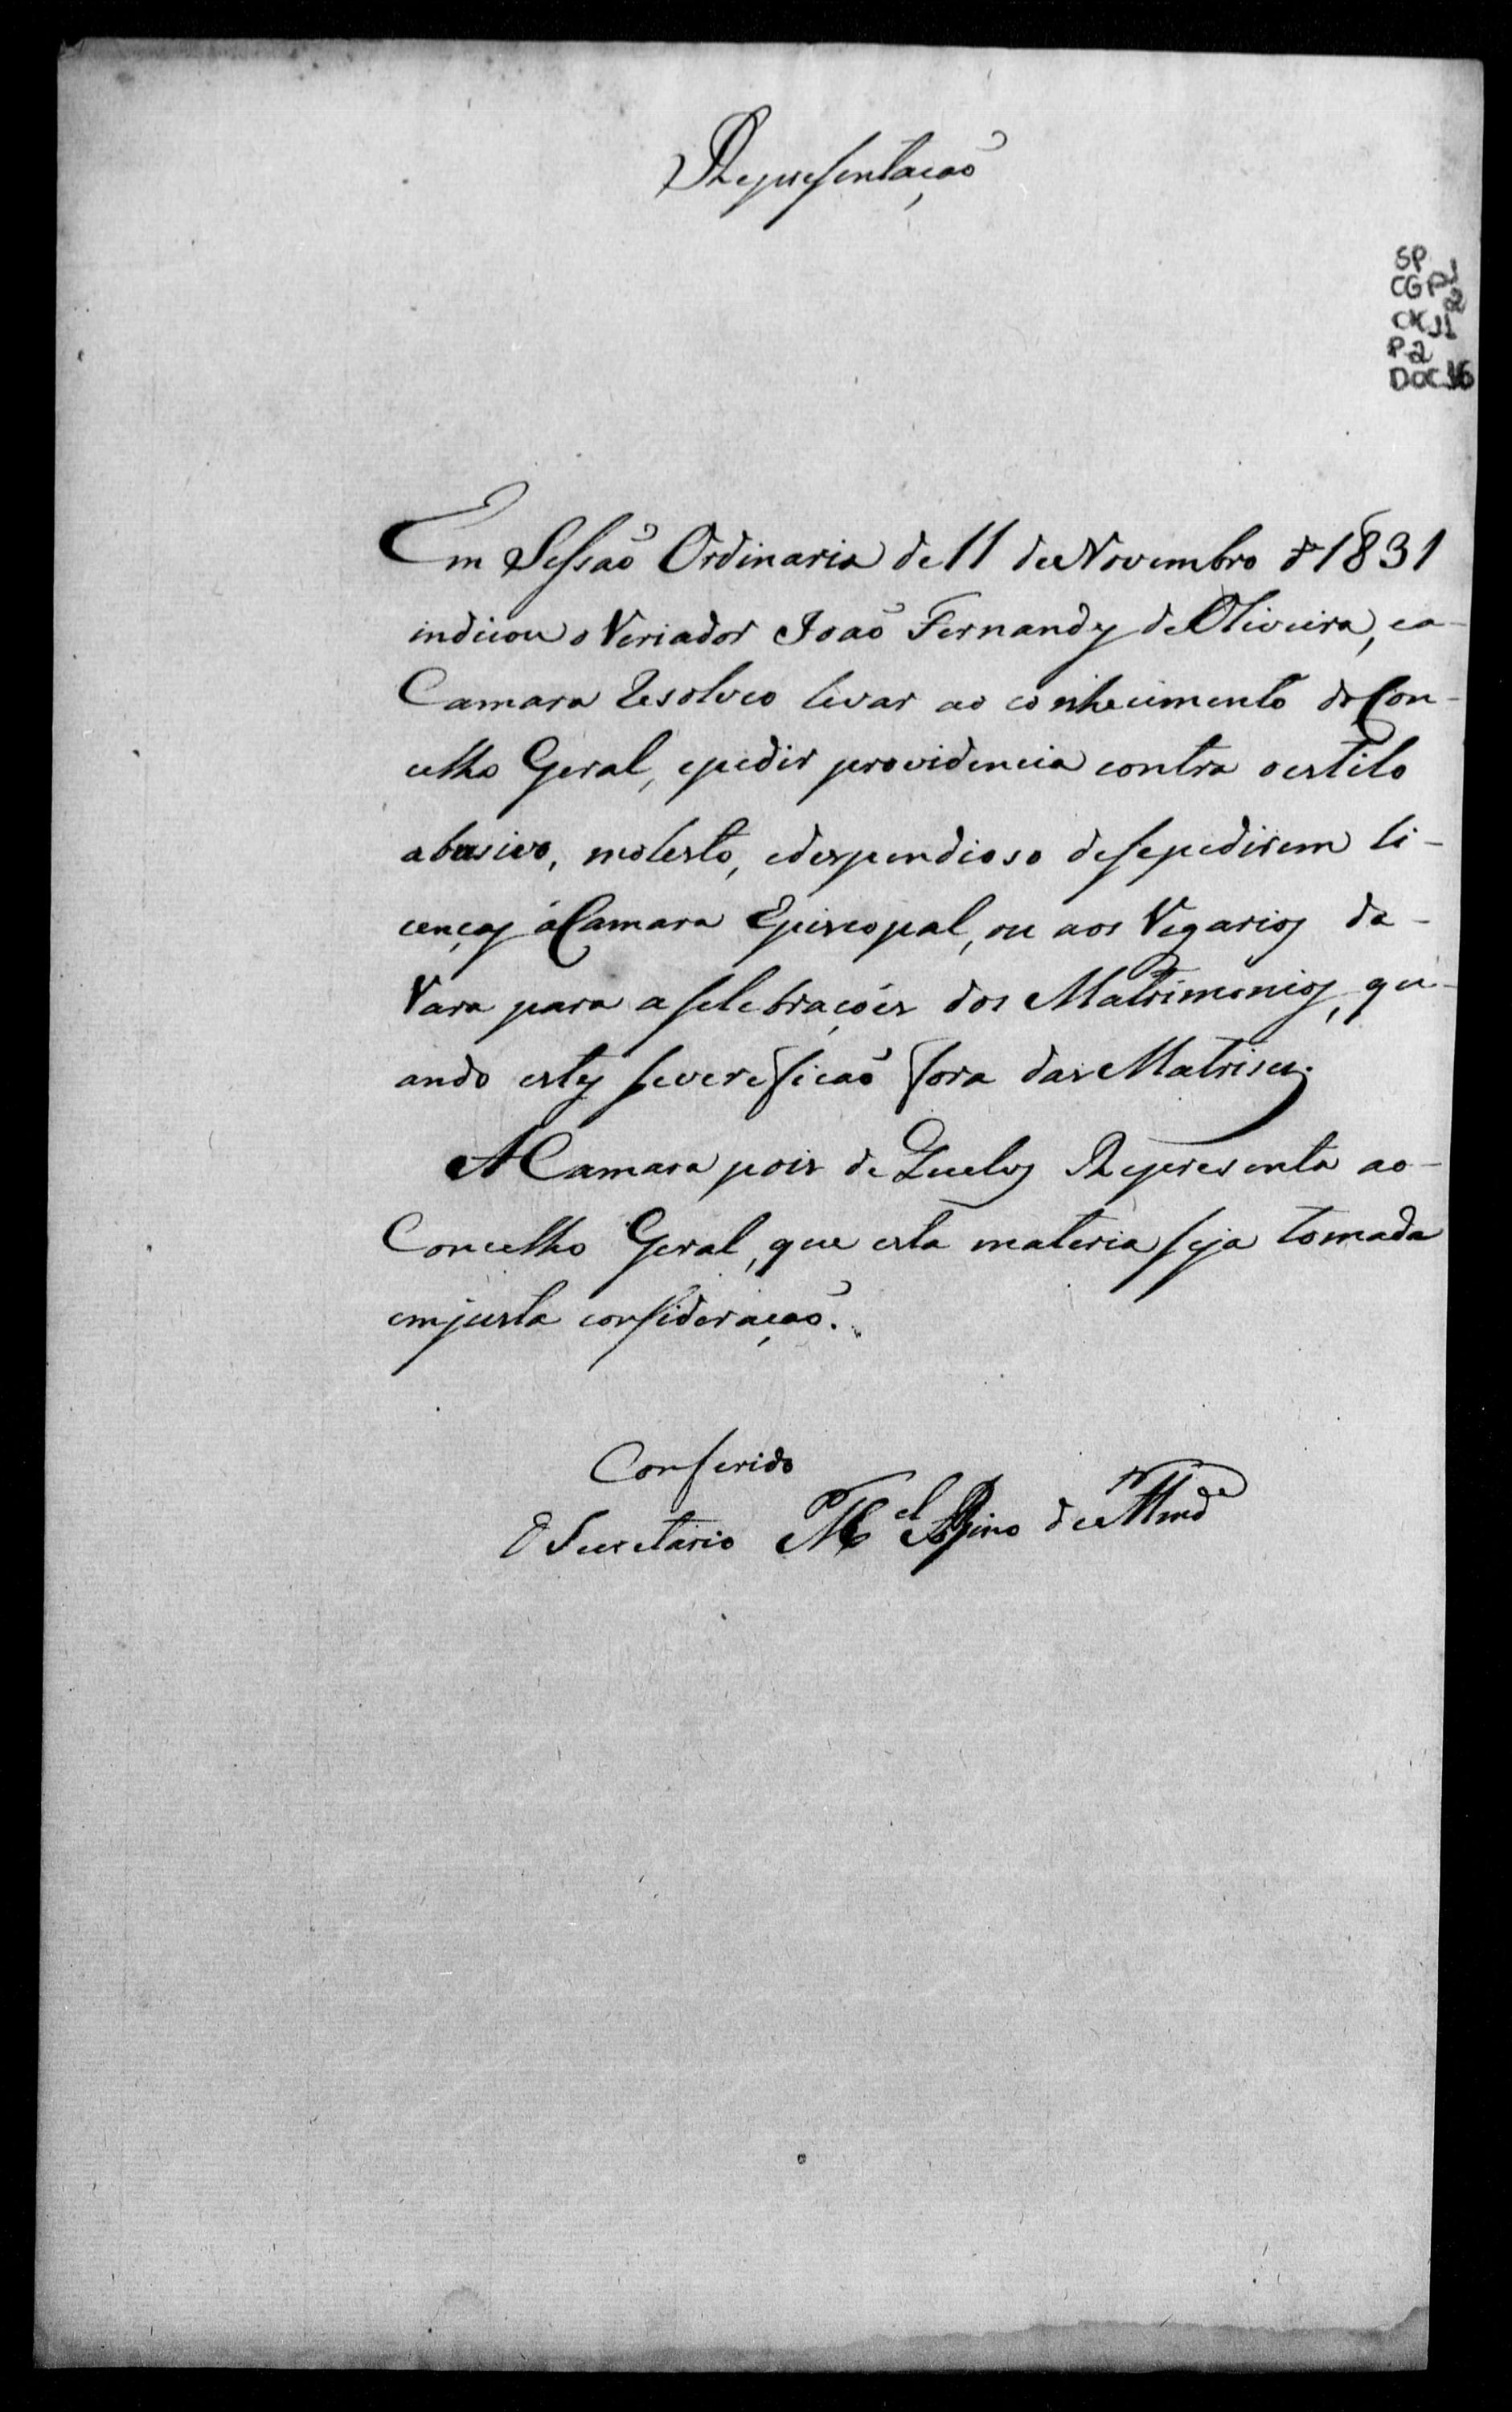 Representação
SP
CGP1
2
CX 11
P2
DOC 16
Em Sessão Ordinaria de 11 de Novembro de 1831
indicou o Veriador João Fernandes de Oliveira, ea-
Camara Resolveo levar ao conhecimento do Con-
celho Geral, epedir providencia contra o estilo
abusivo, molesto, edespendioso desepedirem li-
cenças áCamara Episcopal, ou aos Vegarios da-
Vara para aselebrações dos Matrimonios, qu-
ando estes severeficaõ fora das Matrises.
A Camara pois de Queluz Representa ao-
Concelho Geral, que esta materia seja tomada
emjusta consideração.
Conferido
O Secretario M.el de